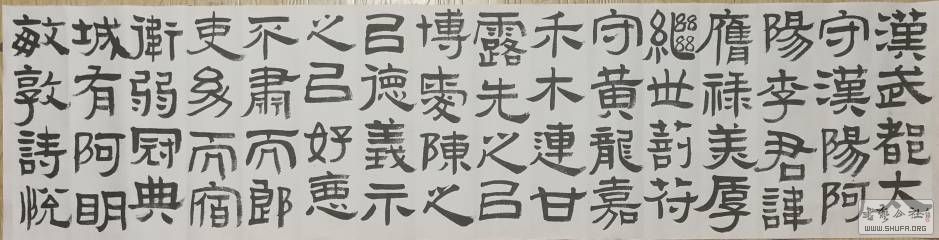 漢武都太
守漢陽阿
陽李君諱
膺祿美厚
繼世苻
守黃龍嘉
禾木連甘
露先之㠯
博愛陳之
㠯德義示
之㠯好惡
不肅而郎
吏幼而宿
衛弱冠典
城有阿明
敏敦詩悅
WWW.SHUFA.ORG